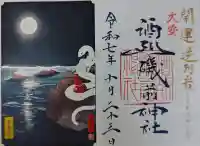 開運
大安
酒列磯前神社
令和七年十月二十三日